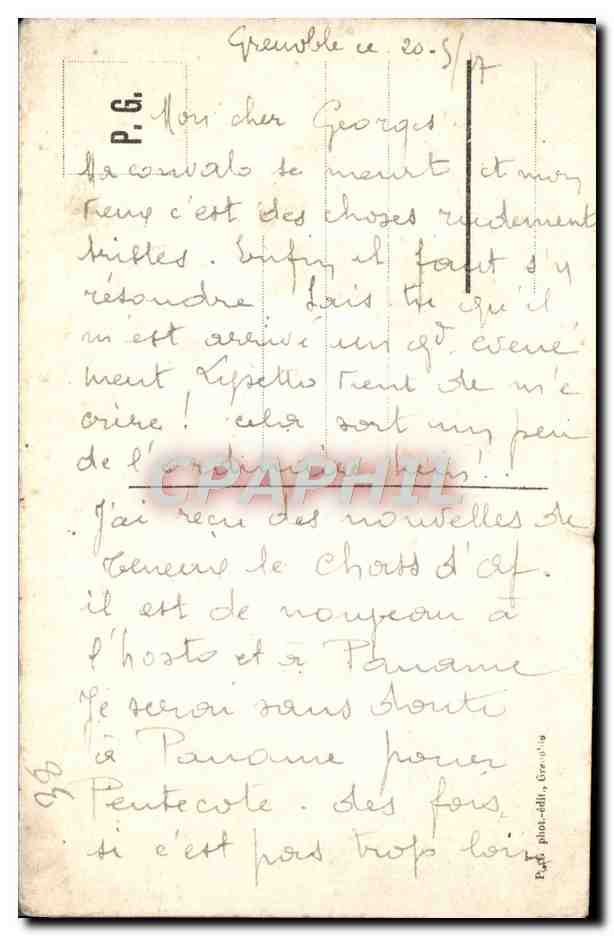 Grenoble ce 20-5/17
P. G.
Mon cher Georges.
Ma convalo se meurt et mon
vieux c'est des choses rudement
tristes. Enfin il faut s'y
résoudre. Sais tu qu'il
m'est arrivé un gd évené
ment Lysetto vient de m'é
crire! cela sort un peu
de l'ordinaire hein!
CPAPHIL
J'ai reçu des nouvelles de
le Chass d'Af.
il est de nouveau à
l'hosto et à Paname
Je serai sans doute
à Paname pour
Pentecote. des fois,
si c'est pas trop loin
38
phot.-édit., Grenoble